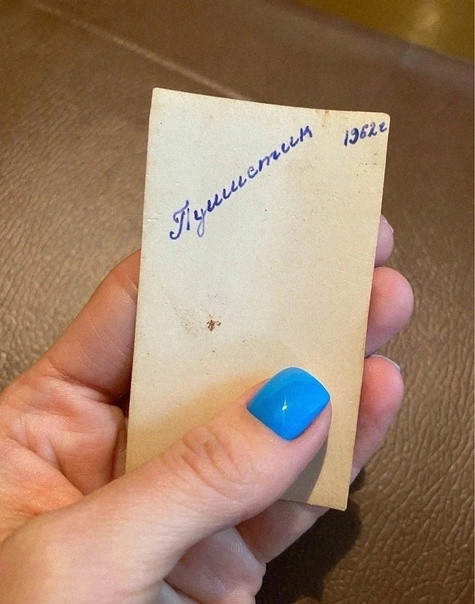 Пушистик 1962г